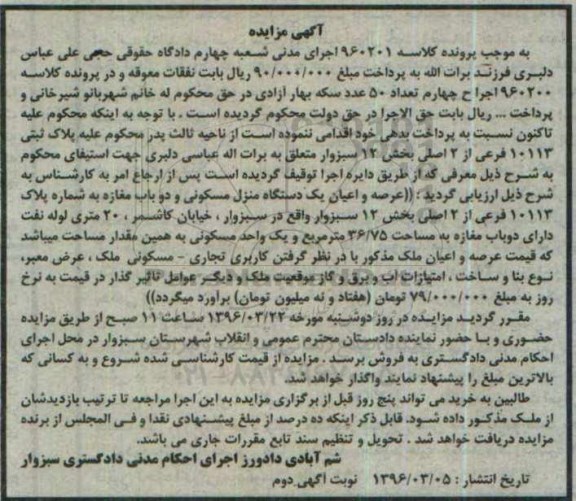 آگهی مزایده
به موجب پرونده کلاسه ۹۶۰۲۰۱ اجرای مدنی شعبه چهارم دادگاه حقوقی حجی علی عباس
دلبری فرزند برات الله به پرداخت مبلغ ۹۰/۰۰۰/۰۰۰ ریال بابت نفقات معوقه و در پرونده کلاسه
۹۶۰۲۰۰ اجرا ح چهارم تعداد ۵۰ عدد سکه بهار آزادی در حق محکوم له خانم شهربانو شیرخانی و
پرداخت ... ریال بابت حق الاجرا در حق دولت محکوم گردیده است . با توجه به اینکه محکوم علیه
تاکنون نسبت به پرداخت بدهی خود اقدامی ننموده است از ناحیه ثالث پدر محکوم علیه پلاک ثبتی
۱۰۱۱۳ فرعی از ۲ اصلی بخش ۱۲ سبزوار متعلق به برات اله عباسی دلبری جهت استیفای محکوم
به شرح ذیل معرفی که از طریق دایره اجرا توقیف گردیده است پس از ارجاع امر به کارشناس به
شرح ذیل ارزیابی گردید : ((عرصه و اعیان یک دستگاه منزل مسکونی و دو باب مغازه به شماره پلاک
۱۰۱۱۳ فرعی از ۲ اصلی بخش ۱۲ سبزوار واقع در سبزوار ، خیابان کاشمر ، ۲۰ متری لوله نفت
دارای دوباب مغازه به مساحت ۳۶/۷۵ مترمربع و یک واحد مسکونی به همین مقدار مساحت میباشد
که قیمت عرصه و اعیان ملک مذکور با در نظر گرفتن کاربری تجاری - مسکونی ملک ، عرض معبر،
نوع بنا و ساخت ، امتیازات آب و برق و گاز موقعیت ملک و دیگر عوامل تاثیر گذار در قیمت به نرخ
روز به مبلغ ۷۹/۰۰۰/۰۰۰ تومان (هفتاد و نه میلیون تومان) برآورد میگردد))
مقرر گردید مزایده در روز دوشنبه مورخه ۱۳۹۶/۰۳/۲۲ ساعت ۱۱ صبح از طریق مزایده
حضوری و با حضور نماینده دادستان محترم عمومی و انقلاب شهرستان سبزوار در محل اجرای
احکام مدنی دادگستری به فروش برسد . مزایده از قیمت کارشناسی شده شروع و به کسانی که
بالاترین مبلغ را پیشنهاد نمایند واگذار خواهد شد.
طالبین به خرید می تواند پنج روز قبل از برگزاری مزایده به این اجرا مراجعه تا ترتیب بازدیدشان
از ملک مذکور داده شود. قابل ذکر اینکه ده درصد از مبلغ پیشنهادی نقدا و فی المجلس از برنده
مزایده دریافت خواهد شد . تحویل و تنظیم سند تابع مقررات جاری می باشد.
شم آبادی دادورز اجرای احکام مدنی دادگستری سبزوار
تاریخ انتشار : ۱۳۹۶/۰۳/۰۵ نوبت آگهی دوم